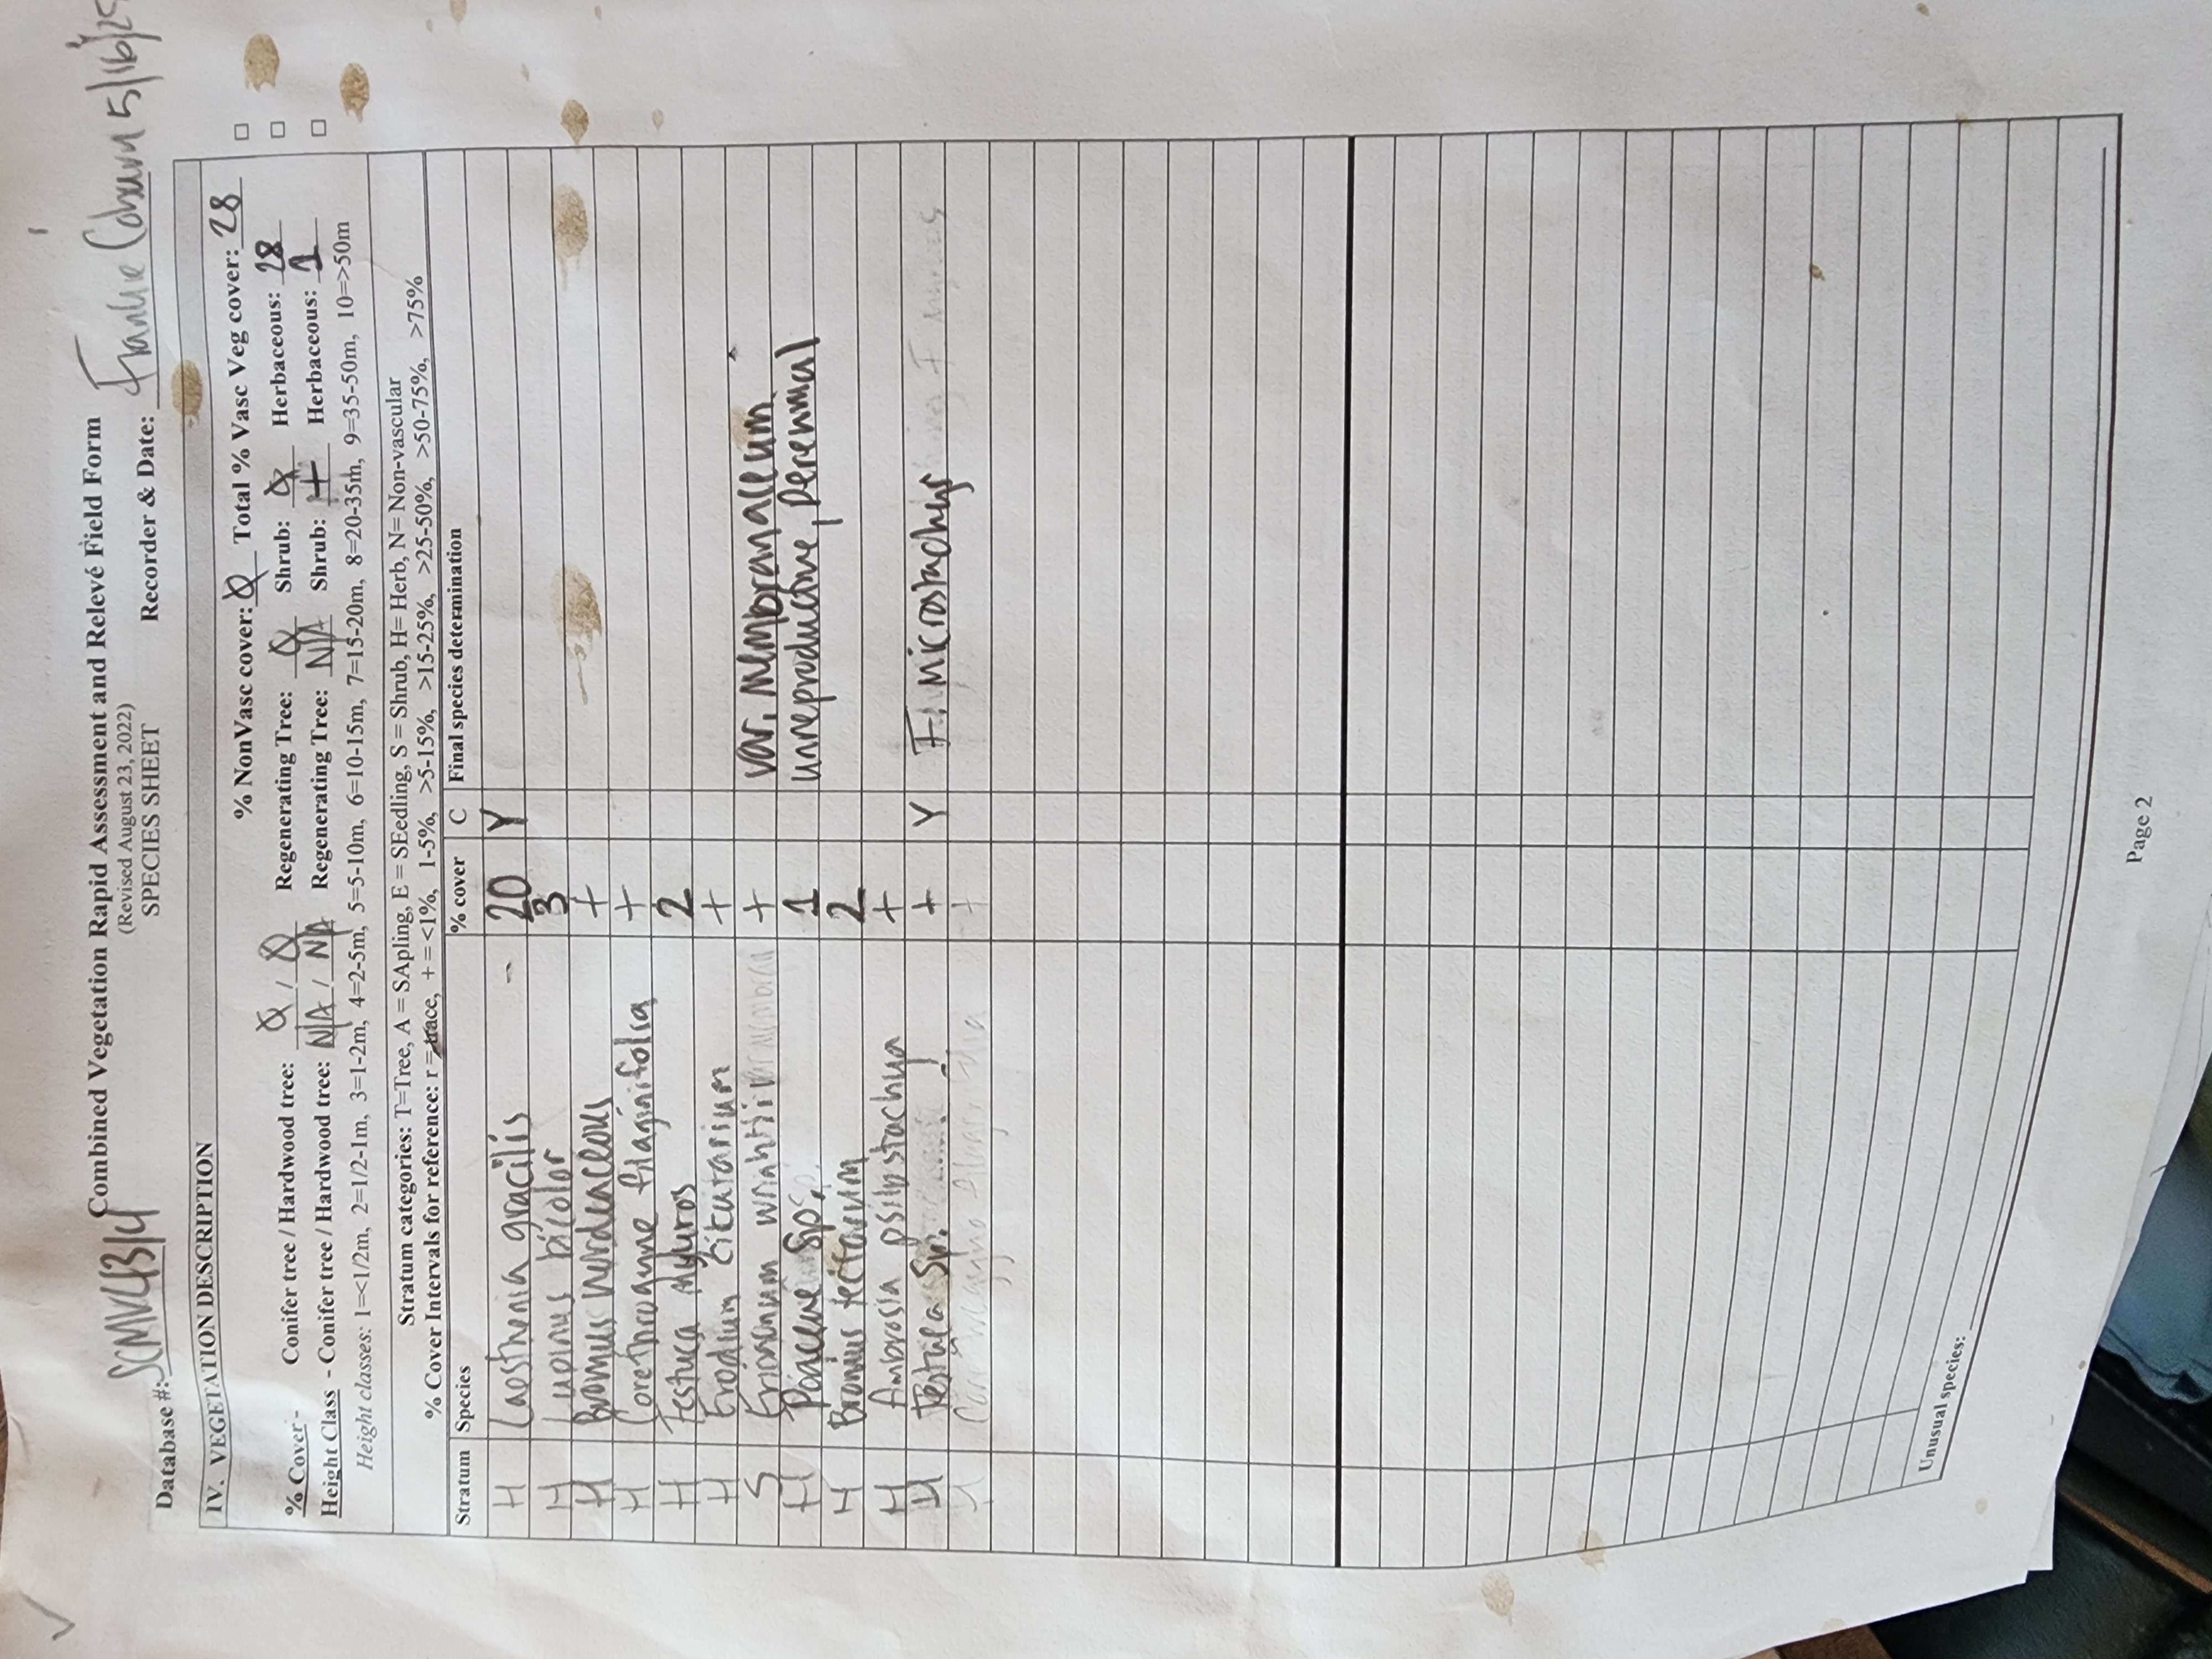 Combined Vegetation Rapid Assessment and Relevé Field Form
(Revised August 23, 2022)
Database #: SCMV4314 SPECIES SHEET Recorder & Date: Frankie 5/16/25
IV. VEGETATION DESCRIPTION
% NonVasc cover: Ø Total % Vasc Veg cover: 28
% Cover - Conifer tree / Hardwood tree: Ø / Ø Regenerating Tree: Ø Shrub: Ø Herbaceous: 28
Height Class - Conifer tree / Hardwood tree: N/A / N/A Regenerating Tree: N/A Shrub: 1 Herbaceous: 1
Height classes: 1=<1/2m, 2=1/2-1m, 3=1-2m, 4=2-5m, 5=5-10m, 6=10-15m, 7=15-20m, 8=20-35m, 9=35-50m, 10=>50m
Stratum categories: T=Tree, A = SApling, E = SEedling, S = Shrub, H= Herb, N= Non-vascular
% Cover Intervals for reference: r = trace, + = <1%, 1-5%, >5-15%, >15-25%, >25-50%, >50-75%, >75%
Stratum Species % cover C Final species determination
H Lasthenia gracilis - 20 Y
H Lupinus bicolor 3
H Bromus hordeaceous +
H Corethrogyne filaginifolia +
H Festuca myuros 2
H Erodium cicutarium +
S Eriogonum wrightii + var. membranaceum
H Poaceae sp. 1 unreproductive, perennial
H Bromus tectorum 2
H Ambrosia psilostachya +
H Festuca sp. + Y F. microstachys
Unusual species:
Page 2